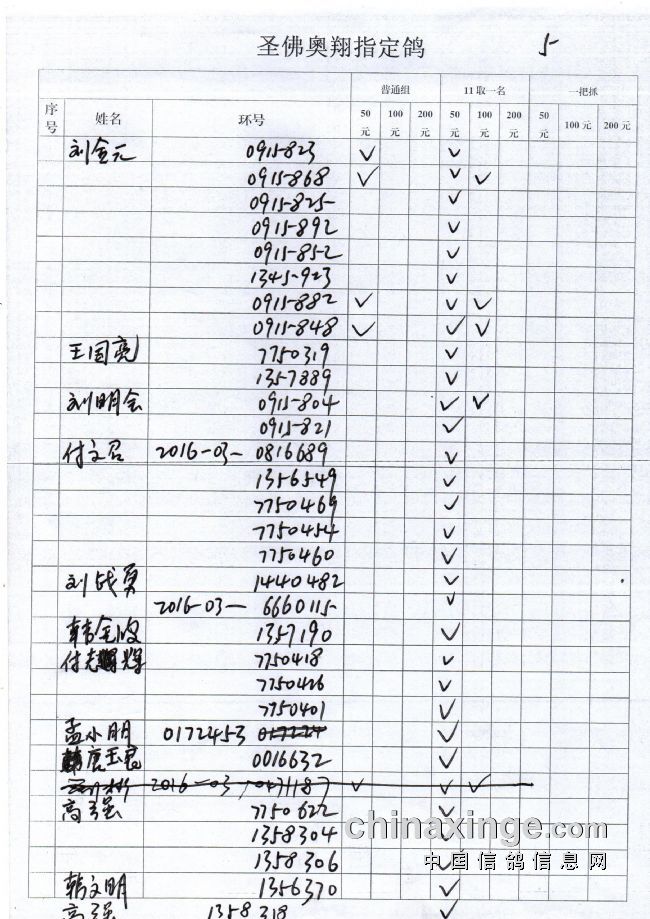 圣佛奥翔指定鸽 5
普通组 11取一名 一把抓
序号 姓名 环号 50元 100元 200元 50元 100元 200元 50元 100元 200元
刘金元 0915823 ✓ ✓
0915868 ✓ ✓ ✓
0915825 ✓
0915892 ✓
0915852 ✓
1345923 ✓
0915882 ✓ ✓ ✓
0915848 ✓ ✓ ✓
王国亮 7750319 ✓
1357889 ✓
刘明会 0915804 ✓ ✓
0915821 ✓
付文召 2016-03-0816689 ✓
1356549 ✓
7750469 ✓
7750454 ✓
7750460 ✓
刘战勇 1440482 ✓
2016-03-6660115 ✓
韩金 1357190 ✓
付 辉 7750418 ✓
7750426 ✓
7750401 ✓
孟小明 0172453 ✓
唐玉 0016632 ✓
2016-03 0471187 ✓ ✓ ✓
高强 7750622 ✓
1358304 ✓
1358306 ✓
韩文明 1356370 ✓
高强 1358318 ✓
chinaxinge.com
中国信鸽信息网